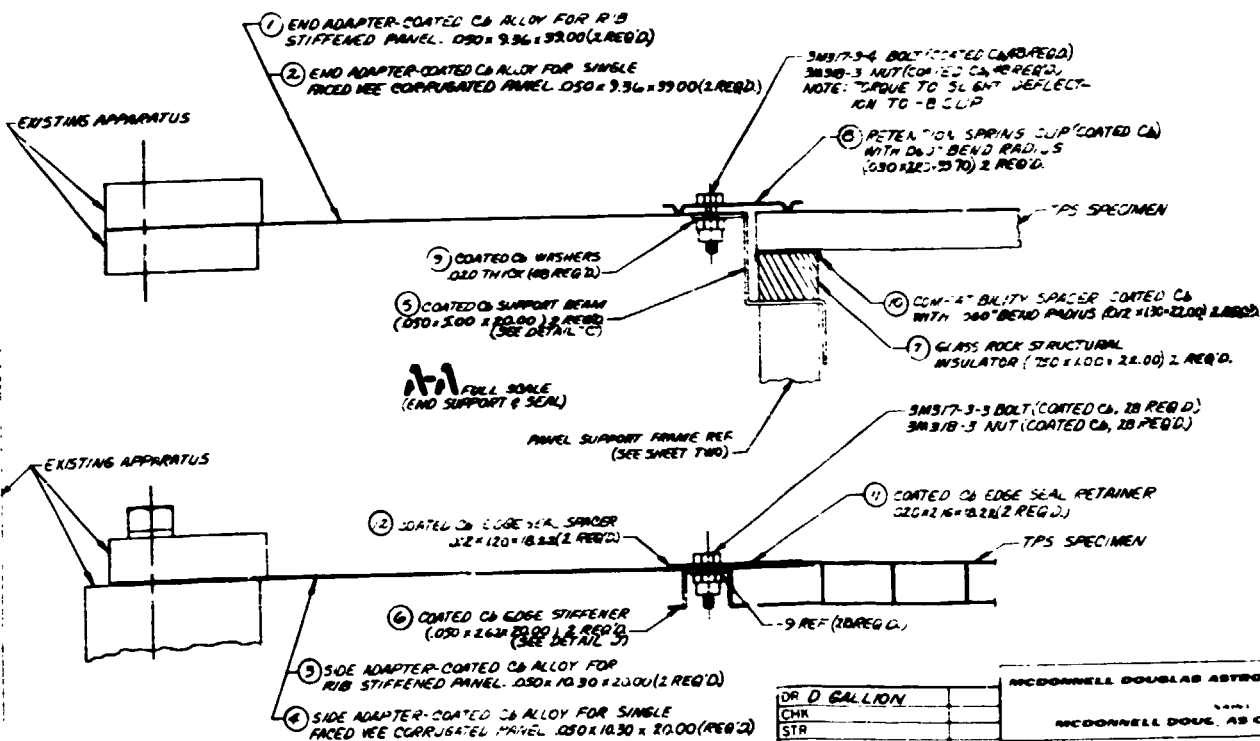 ① END ADAPTER-COATED Cb ALLOY FOR RIB
STIFFENED PANEL. .050 x 9.36 x 39.00 (2 REQ'D)
② END ADAPTER-COATED Cb ALLOY FOR SINGLE
FACED VEE CORRUGATED PANEL .050 x 9.36 x 39.00 (2 REQ'D.)
EXISTING APPARATUS
3M317-3-4 BOLT (COATED Cb, 48 REQ'D.)
3M318-3 NUT (COATED Cb, 48 REQ'D.)
NOTE: TORQUE TO SLIGHT DEFLECT-
ION TO -8 CLIP
⑧ RETENTION SPRING CLIP (COATED Cb)
WITH BEND RADIUS
2 REQ'D.
TPS SPECIMEN
⑨ COATED Cb WASHERS
.020 THICK (48 REQ'D.)
⑤ COATED Cb SUPPORT BEAM
(.050 x 5.00 x 20.00) 2 REQ'D
(SEE DETAIL "C")
⑩ COMPATIBILITY SPACER COATED Cb
WITH BEND RADIUS 2 REQ'D.
⑦ GLASS ROCK STRUCTURAL
INSULATOR (.750 x 1.00 x 22.00) 2 REQ'D.
A-A FULL SCALE
(END SUPPORT & SEAL)
PANEL SUPPORT FRAME REF
(SEE SHEET TWO)
3M317-3-3 BOLT (COATED Cb, 28 REQ'D.)
3M318-3 NUT (COATED Cb, 28 REQ'D.)
EXISTING APPARATUS
⑫ COATED Cb EDGE SEAL SPACER
(2 REQ'D)
⑪ COATED Cb EDGE SEAL RETAINER
(2 REQ'D.)
TPS SPECIMEN
⑥ COATED Cb EDGE STIFFENER
(.050 x 2.63 x 20.00) 2 REQ'D
(SEE DETAIL
-9 REF (28 REQ'D.)
③ SIDE ADAPTER-COATED Cb ALLOY FOR
RIB STIFFENED PANEL. .050 x 10.30 x 20.00 (2 REQ'D)
④ SIDE ADAPTER-COATED Cb ALLOY FOR SINGLE
FACED VEE CORRUGATED PANEL .050 x 10.30 x 20.00 (REQ'D)
DR D GALLION
CHK
STR
MCDONNELL DOUGLAS ASTRO
MCDONNELL DOUG